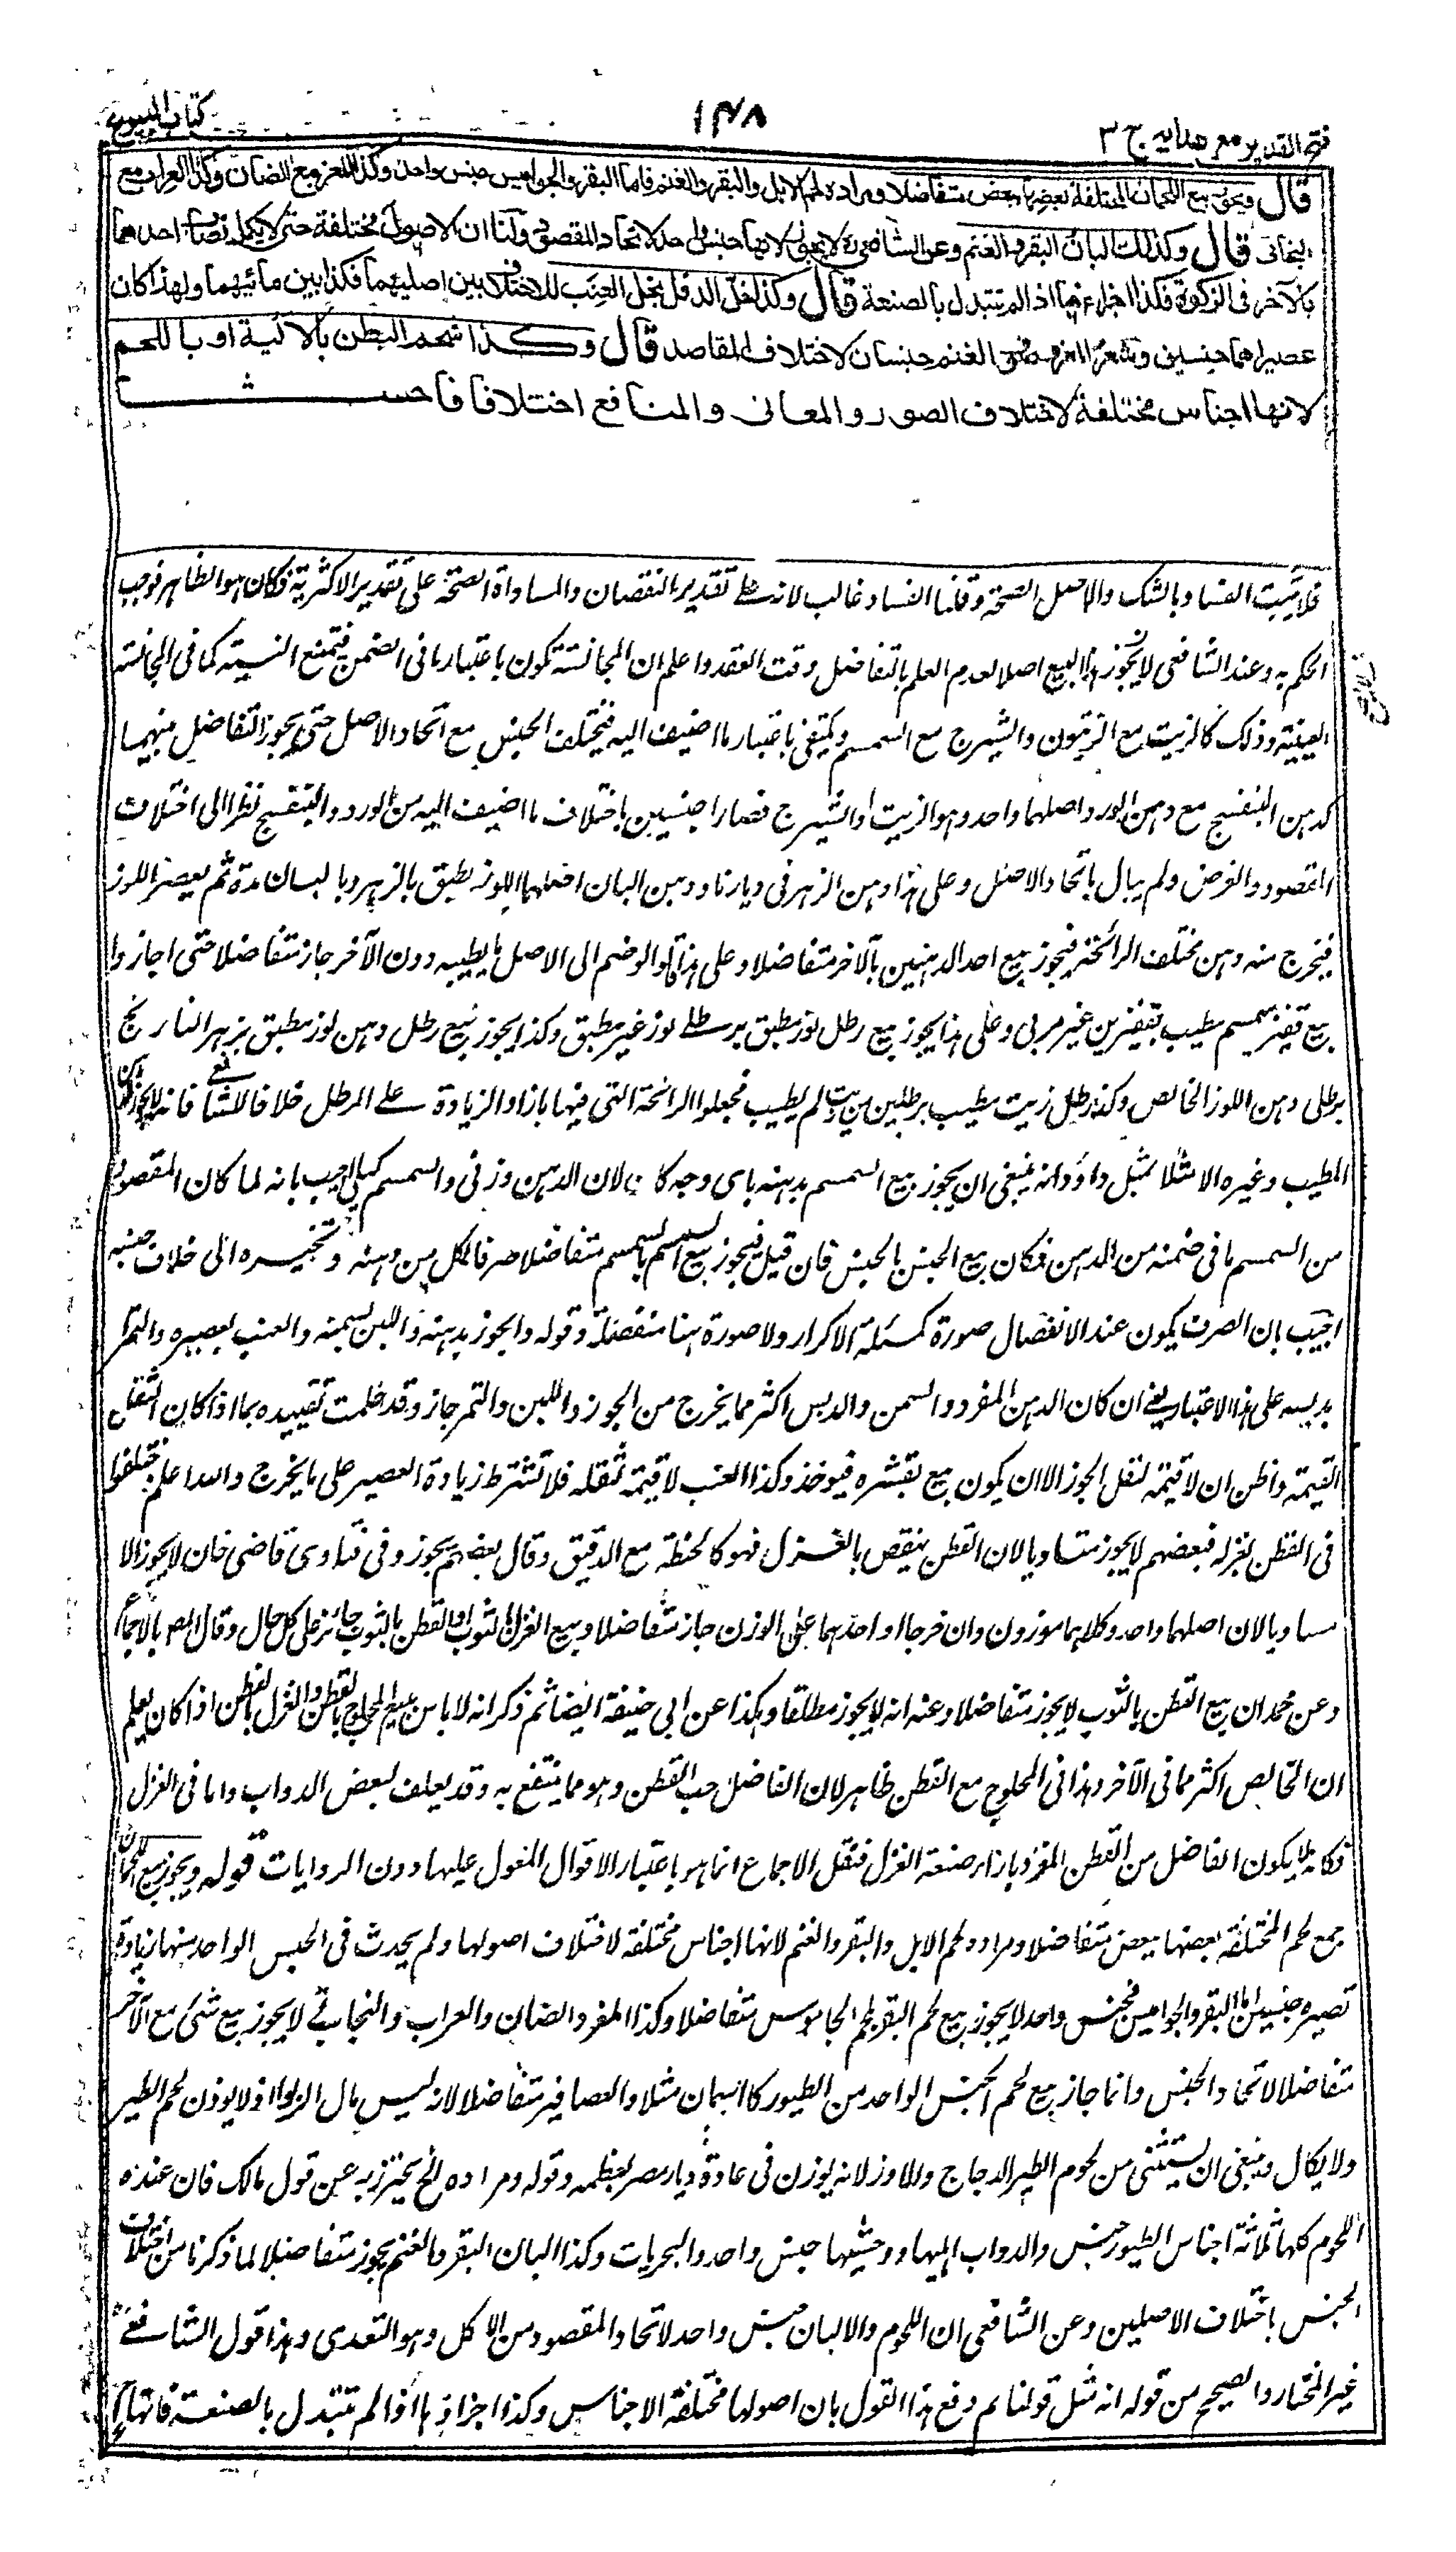 فتح القدير مع هدايه ج ٣
١٤٨
كتاب البيوع
قال ويجوز بيع اللحمان المختلفة بعضها ببعض متفاضلا ومراده لحم الابل والبقر والغنم فاما البقر والجواميس جنس واحد وكذا المعز مع الضان وكذا العراب مع
البخاتى قال وكذلك البان البقر والغنم وعن الشافعى لا يجوز لانها جنس واحد لاتحاد المقصود ولنا ان الاصول مختلفة حتى لا يكمل نصاب احدهما
بالآخر فى الزكوة فكذا اجزاءها اذا لم تتبدل بالصنعة قال وكذا خل الدقل بخل العنب للاختلاف بين اصليهما فكذا بين مائيهما ولهذا كان
عصيراهما جنسين وشعر المعز وصوف الغنم جنسان لاختلاف المقاصد قال وكذا شحم البطن بالالية او باللحم
لانها اجناس مختلفة لاختلاف الصور والمعانى والمنافع اختلافا فاحشا
فلا يثبت الفساد بالشك والاصل الصحة وقلنا الفساد غالب لانه على تقدير النقصان والمساواة الصحة على تقدير الاكثرية فكان هو الظاهر فوجب
الحكم به وعند الشافعى لا يجوز هذا البيع اصلا لعدم العلم بالتفاضل وقت العقد واعلم ان المجانسة تكون باعتبار ما فى الضمن فيمتنع النسيئة كما فى المجانسة
العينية وذلك كالزيت مع الزيتون والشيرج مع السمسم وينتفى باعتبار ما اضيف اليه فيختلف الجنس مع اتحاد الاصل حتى يجوز التفاضل بينهما
كدهن البنفسج مع دهن الورد اصلهما واحد وهو الزيت او الشيرج فصارا جنسين باختلاف ما اضيف اليه من الورد والبنفسج نظرا الى اختلاف
المقصود والغرض ولم يبال باتحاد الاصل وعلى هذا دهن الزهر فى ديارنا ودهن البان اصلهما اللوز يطبق بالزهر وبالبسان مدة ثم يعصر اللوز
فيخرج منه دهن مختلف الرائحة فيجوز بيع احد الدهنين بالآخر متفاضلا وعلى هذا قالوا لو ضم الى الاصل ما يطيبه دون الآخر جاز متفاضلا حتى اجازوا
بيع قفيز سمسم مطيب بقفيزين غير مربى وعلى هذا يجوز بيع رطل لوز مطبق برطلى لوز غير مطبق وكذا يجوز بيع رطل دهن لوز مطبق بزهر النارنج
برطلى دهن اللوز الخالص وكذا رطل زيت مطيب برطلين من زيت لم يطيب فجعلوا الرائحة التى فيها بازاء الزيادة على الرطل خلافا للشافعى فانه لا يجوز
المطيب وغيره الا مثلا بمثل واورد انه ينبغى ان يجوز بيع السمسم بدهنه باى وجه كان لان الدهن وزنى والسمسم كيلى اجيب بانه لما كان المقصود
من السمسم ما فى ضمنه من الدهن فكان بيع الجنس بالجنس فان قيل فيجوز بيع السمسم بالسمسم متفاضلا صرفا لكل من دهنه وثجيره الى خلاف جنسه
اجيب بان الصرف يكون عند الانفصال صورة كمسئلة الاكرار ولا صورة هنا منفصلة وقوله والجوز بدهنه واللبن بسمنه والعنب بعصيره والتمر
بدبسه على هذا الاعتبار يعنى ان كان الدهن المفرد والسمن والدبس اكثر مما يخرج من الجوز واللبن والتمر جاز وقد علمت تقييده بما اذا كان الثفل
القيمة واظن ان لا قيمة لثفل الجوز الا ان يكون بيع بقشره فيوخذ وكذا العنب لا قيمة لثفله فلا تشترط زيادة العصير على ما يخرج والله اعلم اختلفوا
فى القطن بغزله فبعضهم لا يجوز متساويا لان القطن ينقص بالغزل فهو كالحنطة مع الدقيق وقال بعضهم يجوز وفى فتاوى قاضى خان لا يجوز الا
مساويا لان اصلهما واحد وكلاهما موزون وان خرجا او احدهما عن الوزن جاز متفاضلا وبيع الغزل بالثوب والقطن بالثوب جائز على كل حال وقال المص بالاجماع
وعن محمد ان بيع القطن بالثوب لا يجوز متفاضلا وعنه انه لا يجوز مطلقا وهكذا عن ابى حنيفة ايضا ثم ذكر انه لا باس ببيع المحلوج بالقطن والغزل بالقطن اذا كان يعلم
ان الخالص اكثر مما فى الآخر وهذا فى المحلوج مع القطن ظاهر لان الفاضل حب القطن وهو مما ينتفع به وقد يعلف لبعض الدواب واما فى الغزل
فكانه يكون الفاضل من القطن المفرد بازاء صنعة الغزل فنقل الاجماع انما هو باعتبار الاقوال المعول عليها دون الروايات قوله ويجوز بيع اللحمان
جمع لحم المختلفة بعضها ببعض متفاضلا ومراده لحم الابل والبقر والغنم لانها اجناس مختلفة لاختلاف اصولها ولم يحدث فى الجنس الواحد منها زيادة
تصيره جنسين اما البقر والجواميس فجنس واحد لا يجوز بيع لحم البقر بلحم الجاموس متفاضلا وكذا المعز والضان والعراب والبخاتى لا يجوز بيع شئ مع الآخر
متفاضلا لاتحاد الجنس وانما جاز بيع لحم الجنس الواحد من الطيور كالسمان مثلا والعصافير متفاضلا لانه ليس بمال الربوا اذ لا يوزن لحم الطير
ولا يكال وينبغى ان يستثنى من لحوم الطير الدجاج والاوز لانه يوزن فى عادة ديار مصر بعظمه وقوله ومراده الخ يحترز به عن قول مالك فان عنده
اللحوم كلها ثلاثة اجناس الطيور جنس والدواب اهليها ووحشيها جنس واحد والبحريات وكذا البان البقر والغنم يجوز متفاضلا لما ذكرنا من اختلاف
الجنس باختلاف الاصلين وعن الشافعى ان اللحوم والالبان جنس واحد لاتحاد المقصود من الاكل وهو التغذى وهذا قول الشافعى
غير المختار والصحيح من قوله انه مثل قولنا ثم دفع هذا القول بان اصولها مختلفة الاجناس وكذا اجزاؤها اذا لم تتبدل بالصنعة فانها